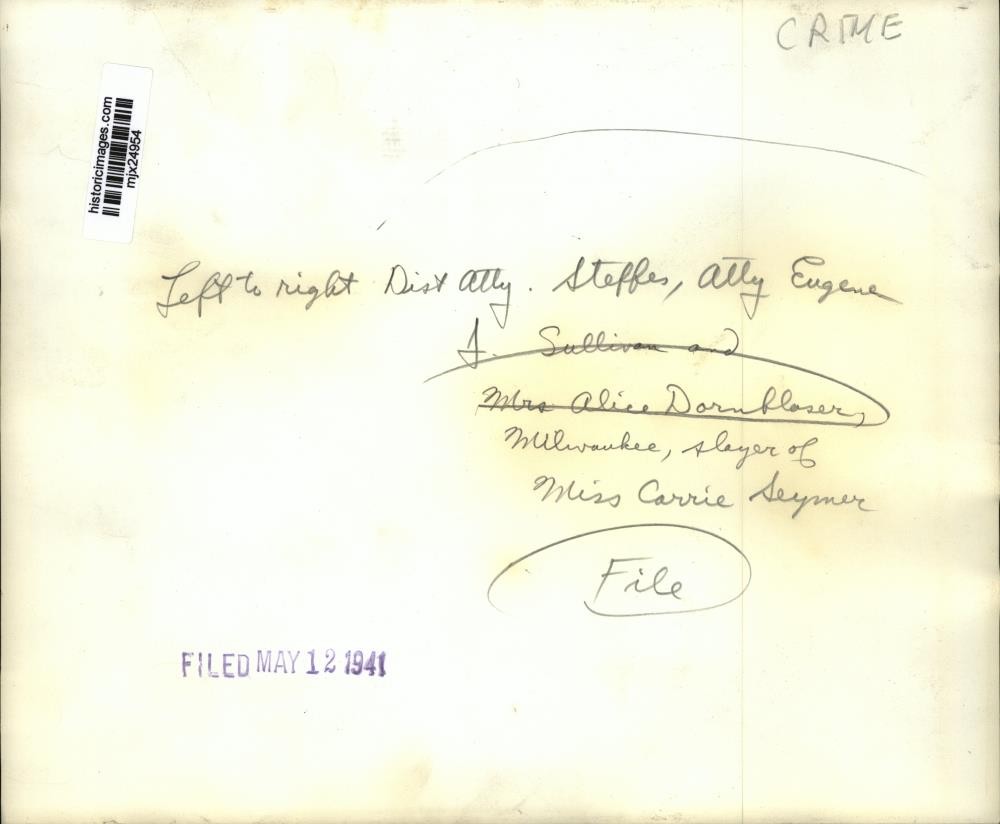 CRIME
historicimages.com
mjx24954
Left to right Dist Atty. Steffes, Atty Eugene
J. Sullivan and
Mrs Alice Dornblaser,
Milwaukee, slayer of
Miss Carrie Seymer
File
FILED MAY 12 1941